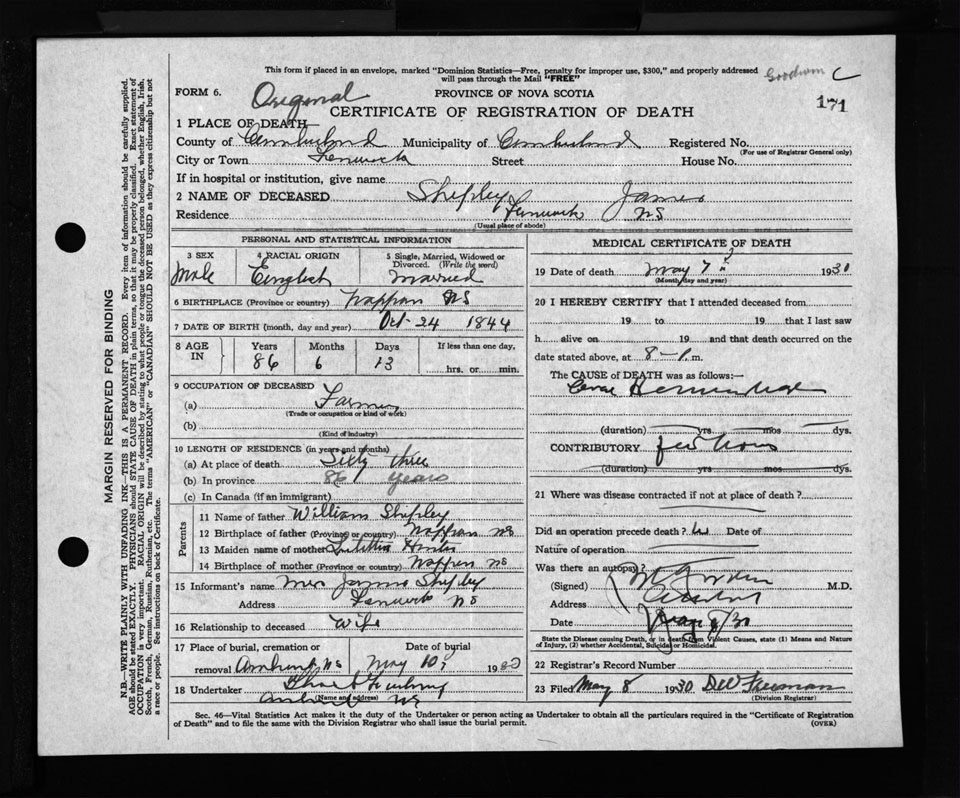 This form if placed in an envelope, marked "Dominion Statistics—Free, penalty for improper use, $300," and properly addressed
will pass through the Mail "FREE"
Goodwin C
FORM 6. Original PROVINCE OF NOVA SCOTIA 171
CERTIFICATE OF REGISTRATION OF DEATH
1 PLACE OF DEATH—
County of Cumberland Municipality of Cumberland Registered No.
(For use of Registrar General only)
City or Town Fenwick Street House No.
If in hospital or institution, give name
2 NAME OF DECEASED Shipley James
Residence Fenwick NS
(Usual place of abode)
PERSONAL AND STATISTICAL INFORMATION
3 SEX 4 RACIAL ORIGIN 5 Single, Married, Widowed or
Divorced. (Write the word)
Male English Married
6 BIRTHPLACE (Province or country) Nappan NS
7 DATE OF BIRTH (month, day and year) Oct 24 1844
8 AGE IN Years Months Days If less than one day,
86 6 13 hrs. or min.
9 OCCUPATION OF DECEASED
(a) Farmer
(Trade or occupation or kind of work)
(b)
(Kind of industry)
10 LENGTH OF RESIDENCE (in years and months)
(a) At place of death Sixty three
(b) In province 86 years
(c) In Canada (if an immigrant)
Parents
11 Name of father William Shipley
12 Birthplace of father (Province or country) Nappan NS
13 Maiden name of mother Hunter
14 Birthplace of mother (Province or country) Nappan NS
15 Informant's name Mrs James Shipley
Address Fenwick NS
16 Relationship to deceased Wife
17 Place of burial, cremation or removal Date of burial
Amherst NS May 10, 1930
18 Undertaker
(Name and address)
Amherst NS
MEDICAL CERTIFICATE OF DEATH
19 Date of death May 7 1930
(Month, day and year)
20 I HEREBY CERTIFY that I attended deceased from
19 to 19 that I last saw
h alive on 19 and that death occurred on the
date stated above, at 8 – P.m.
The CAUSE of DEATH was as follows:—
Hemorrhage
(duration) yrs. mos. dys.
CONTRIBUTORY few hours
(duration) yrs. mos. dys.
21 Where was disease contracted if not at place of death?
Did an operation precede death? Date of
Nature of operation
Was there an autopsy?
(Signed) M.D.
Address Amherst
Date May 8/30
State the Disease causing Death, or in death from Violent Causes, state (1) Means and Nature
of Injury, (2) whether Accidental, Suicidal or Homicidal.
22 Registrar's Record Number
23 Filed May 8 1930 Freeman
(Division Registrar)
Sec. 46—Vital Statistics Act makes it the duty of the Undertaker or person acting as Undertaker to obtain all the particulars required in the "Certificate of Registration
of Death" and to file the same with the Division Registrar who shall issue the burial permit. (OVER)
MARGIN RESERVED FOR BINDING
N.B.—WRITE PLAINLY WITH UNFADING INK—THIS IS A PERMANENT RECORD. Every item of information should be carefully supplied.
AGE should be stated EXACTLY. PHYSICIANS should STATE CAUSE OF DEATH in plain terms, so that it may be properly classified. Exact statement of
OCCUPATION is very important. RACIAL ORIGIN will be described by stating to what people or tongue the deceased person belonged, whether English, Irish,
Scotch, French, German, Russian, Ruthenian, etc. The terms "AMERICAN" or "CANADIAN" SHOULD NOT BE USED as they express citizenship but not
a race or people. See instructions on back of Certificate.